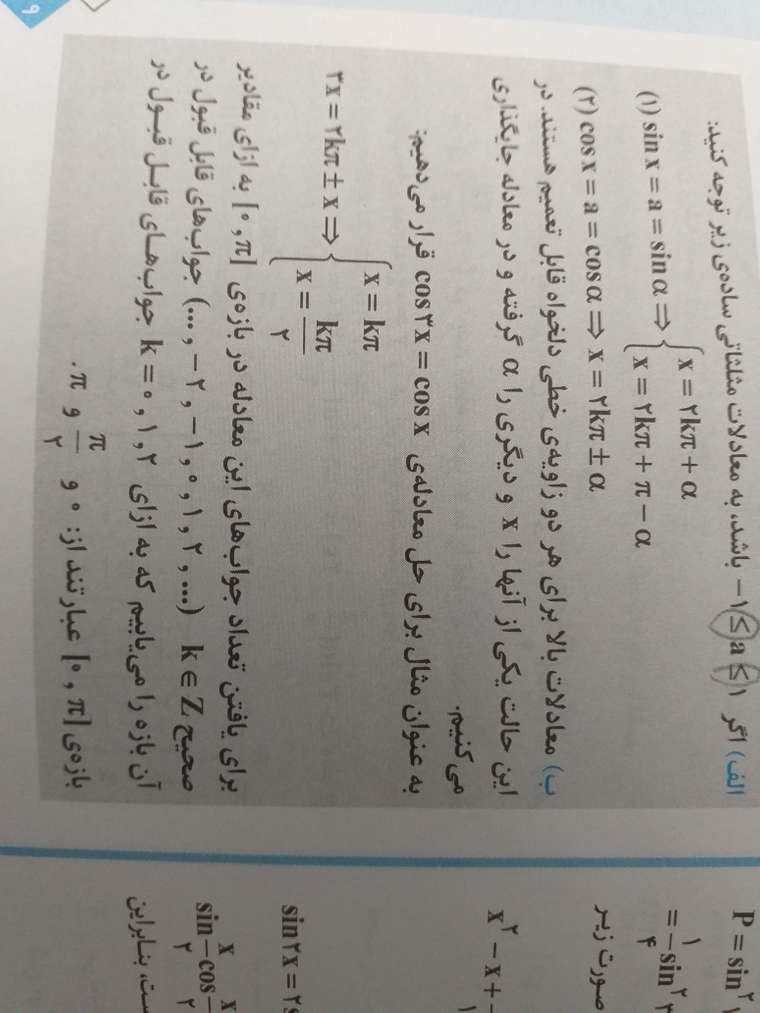 الف) اگر ۱ ≥ a ≥ ۱− باشد، به معادلات مثلثاتی ساده‌ی زیر توجه کنید:
(۱) sin x = a = sin α ⇒ { x = ۲kπ + α
x = ۲kπ + π − α
(۲) cos x = a = cos α ⇒ x = ۲kπ ± α
ب) معادلات بالا برای هر دو زاویه‌ی خطی دلخواه قابل تعمیم هستند. در
این حالت یکی از آنها را x و دیگری را α گرفته و در معادله جایگذاری
می‌کنیم.
به عنوان مثال برای حل معادله‌ی cos ۳x = cos x قرار می‌دهیم:
۳x = ۲kπ ± x ⇒ { x = kπ
x = kπ/۲
برای یافتن تعداد جواب‌های این معادله در بازه‌ی [۰, π] به ازای مقادیر
صحیح k ∈ Z (..., −۲, −۱, ۰, ۱, ۲, ...) جواب‌های قابل قبول در
آن بازه را می‌یابیم که به ازای k = ۰, ۱, ۲ جواب‌های قابل قبول در
بازه‌ی [۰, π] عبارتند از: ۰ و π/۲ و π.
۹
P = sin²
= ۱/۴ sin² ۲
صورت زیر
x² − x +
sin ۲x = ۲s
sin x/۲ cos x/۲
ست، بنابراین